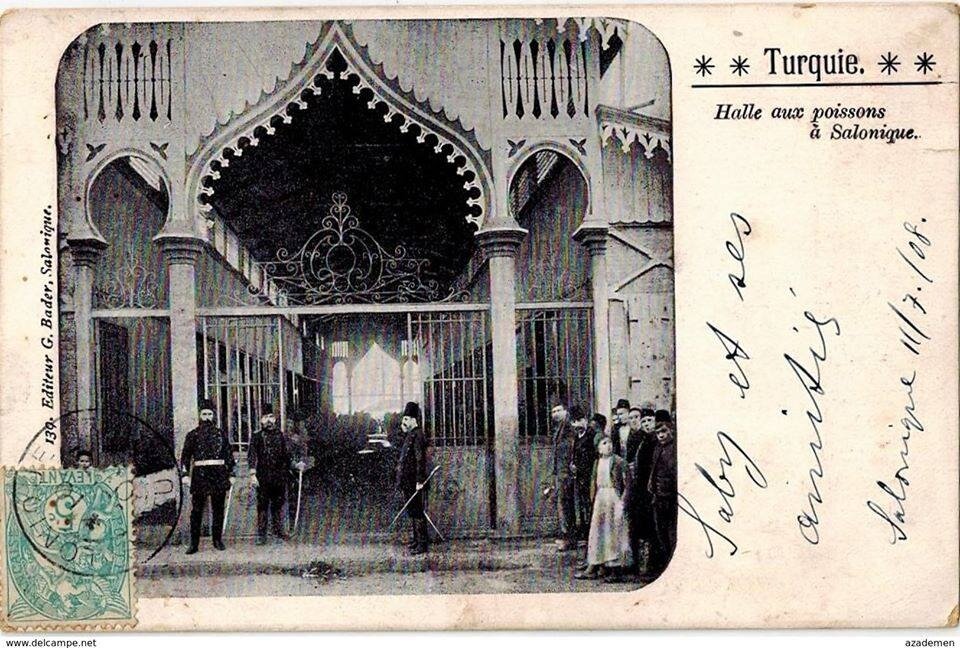 * * Turquie. * *
Halle aux poissons
à Salonique.
139. Editeur G. Bader, Salonique.
Saby et ses
amitiés
Salonique 11/7./08.
LEVANTE
delcampe.net
azademen